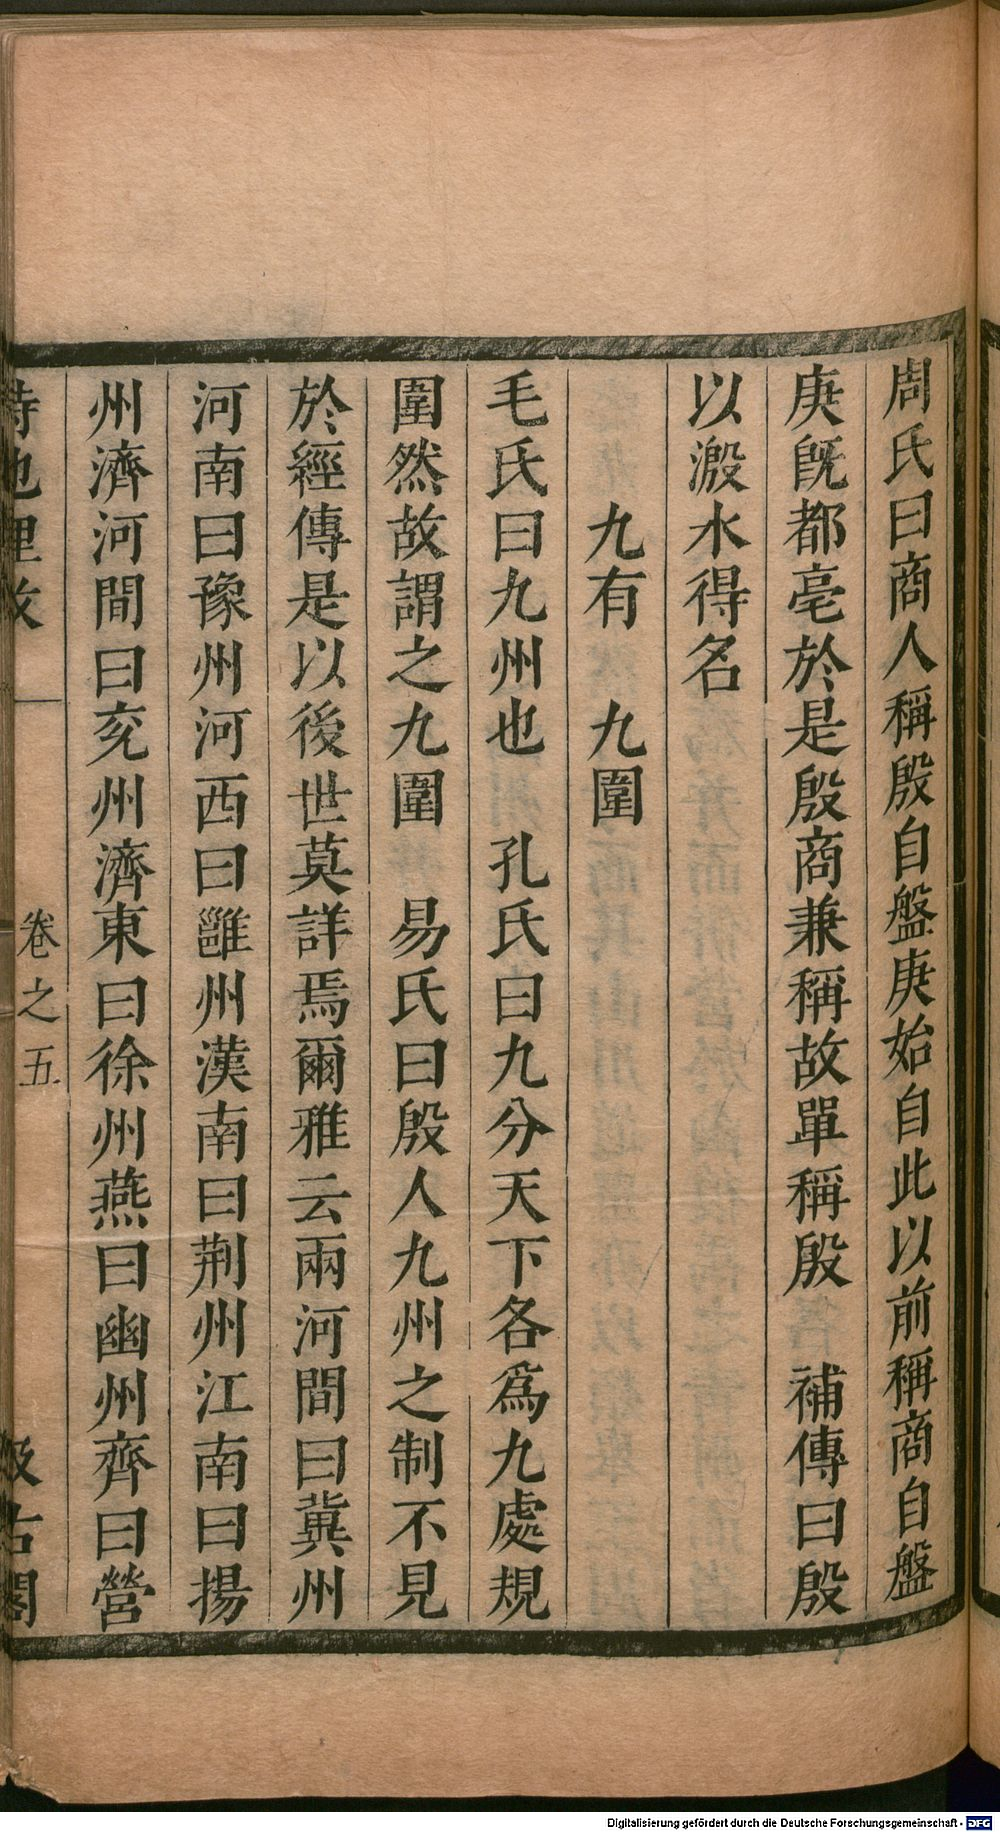 周氏曰商人稱殷自盤庚始自此以前稱商自盤
庚旣都亳於是殷商兼稱故單稱殷　補傳曰殷
以濦水得名
九有　九圍
毛氏曰九州也　孔氏曰九分天下各爲九處規
圍然故謂之九圍　易氏曰殷人九州之制不見
於經傳是以後世莫詳焉爾雅云兩河間曰冀州
河南曰豫州河西曰雝州漢南曰荆州江南曰揚
州濟河間曰兖州濟東曰徐州燕曰幽州齊曰營
詩地理攷　卷之五　汲古閣
Digitalisierung gefördert durch die Deutsche Forschungsgemeinschaft - DFG